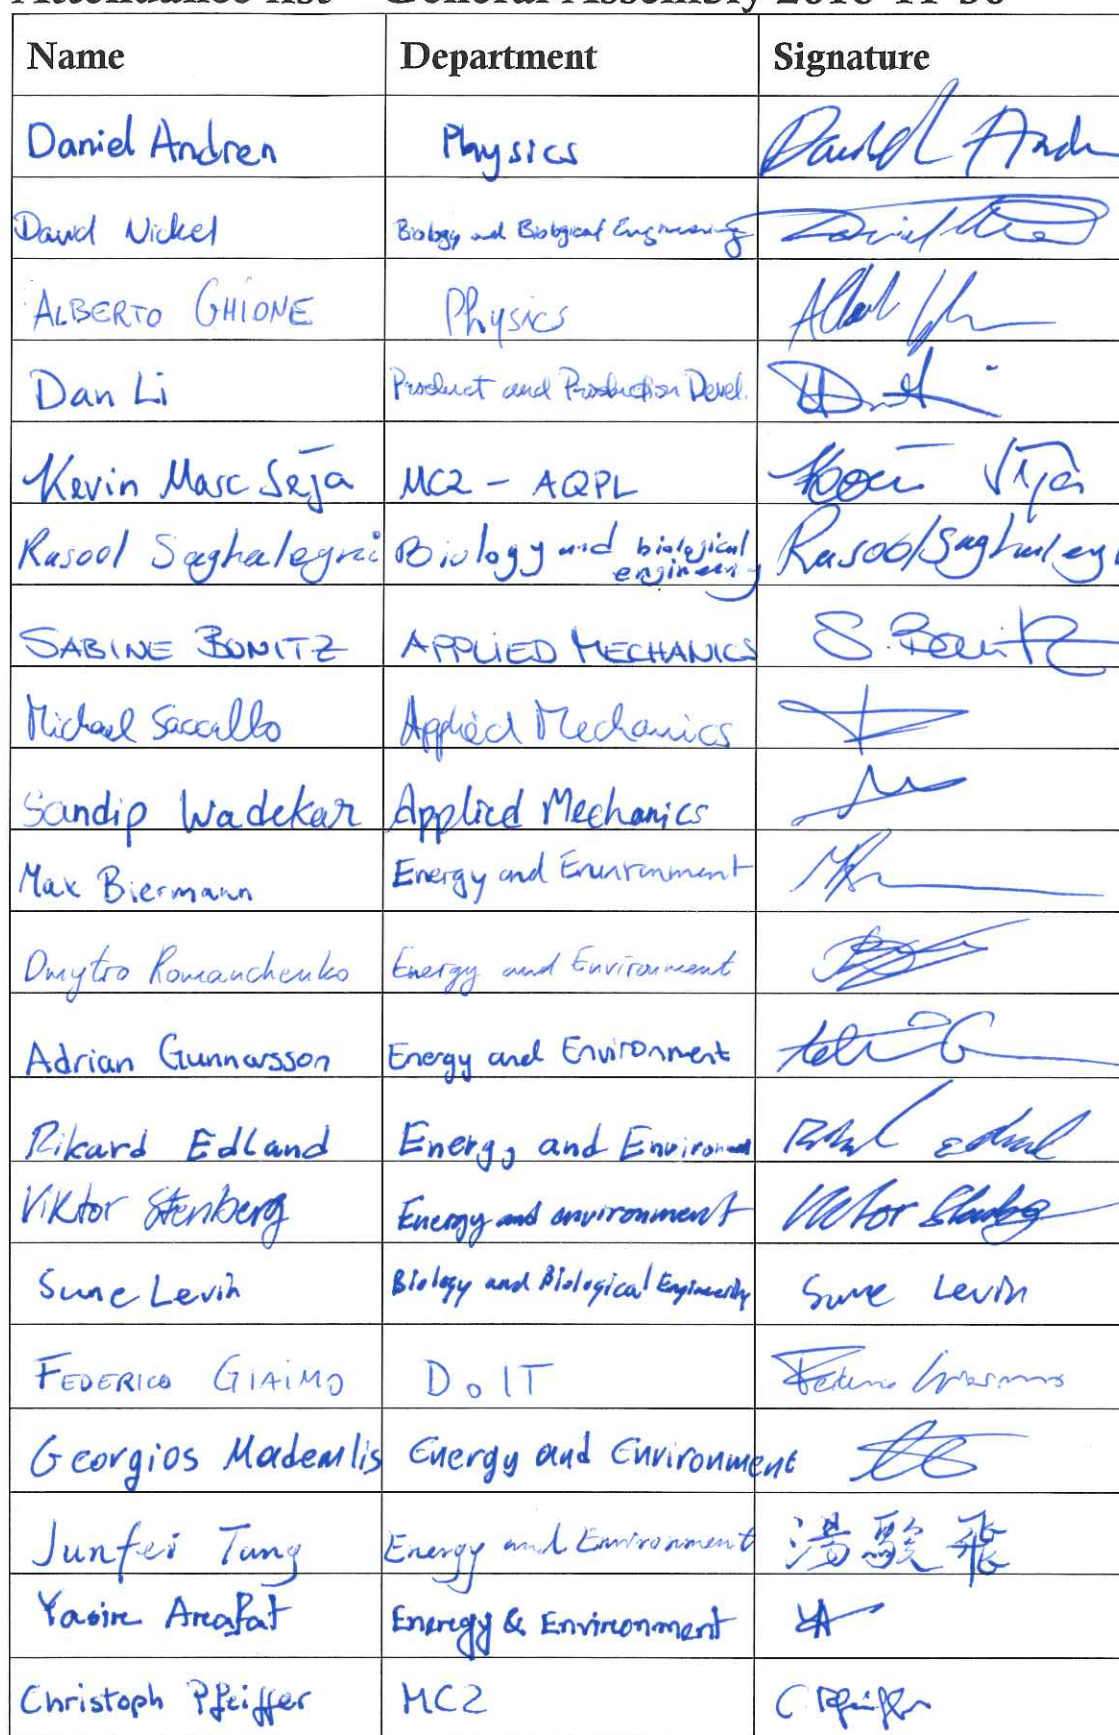 Attendance list – General Assembly 2016-11-30
Name Department Signature
Daniel Andren Physics
David Nickel Biology and Biological Engineering
ALBERTO GHIONE Physics
Dan Li Product and Production Devel.
Kevin Marc Seja MC2 - AQPL
Rasool Saghalegrai Biology and biological engineering Rasool Saghaleg
SABINE BONITZ APPLIED MECHANICS S. Bonitz
Michael Saccallo Applied Mechanics
Sandip Wadekar Applied Mechanics
Max Biermann Energy and Environment
Dmytro Romanchenko Energy and Environment
Adrian Gunnarsson Energy and Environment
Rikard Edland Energy and Environment
Viktor Stenberg Energy and environment Viktor Stenberg
Sune Levin Biology and Biological Engineering Sune Levin
FEDERICO GIAIMO DoIT
Georgios Mademlis Energy and Environment
Junfei Tang Energy and Environment 湯駿飛
Yasire Areafat Eneregy & Environment
Christoph Pfeiffer MC2 C. Pfeiffer